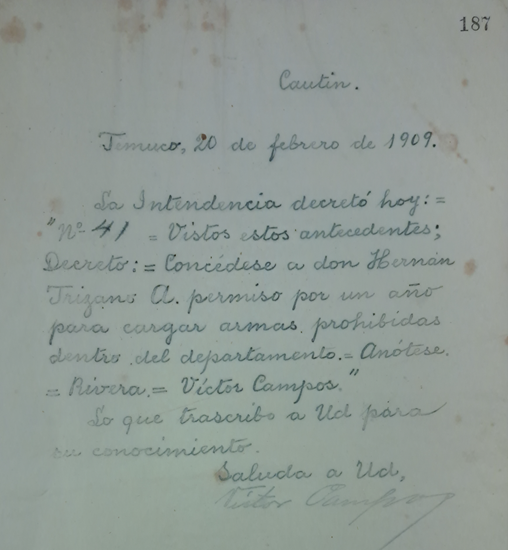 187
Cautin.
Temuco, 20 de febrero de 1909.
La Intendencia decretó hoy:=
"Nº 41 = Vistos estos antecedentes;
Decreto:= Concédese a don Hernán
Trizano A. permiso por un año
para cargar armas prohibidas
dentro del departamento.= Anótese.
= Rivera.= Víctor Campos."
Lo que trascribo a Ud para
su conocimiento.
Saluda a Ud,
Víctor Campos